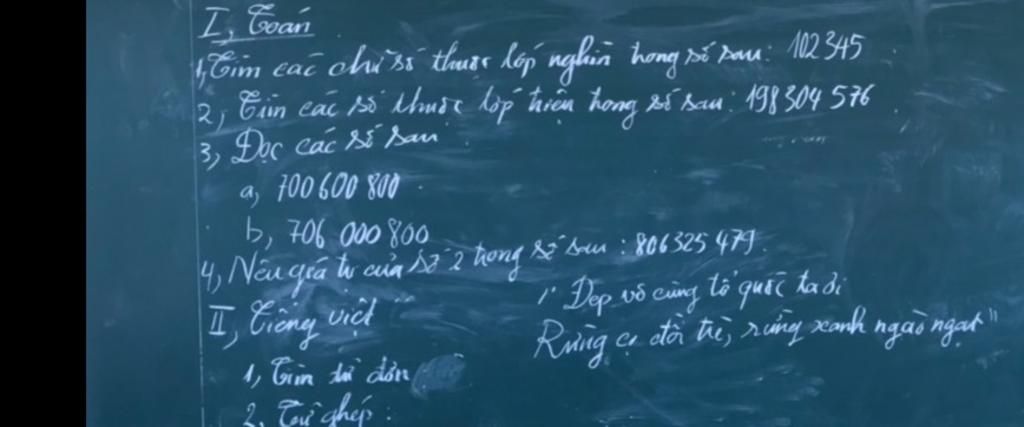 I, Toán
1, Tìm các chữ số thuộc lớp nghìn trong số sau: 102345
2, Tìm các số thuộc lớp triệu trong số sau: 198304 576
3, Đọc các số sau
a, 700 600 800
b, 706 000 800
4, Nêu giá trị của số 2 trong số sau: 806325 479.
II, Tiếng việt
"Đẹp vô cùng tổ quốc ta ơi
Rừng cọ đồi chè, rừng xanh ngào ngạt"
1, Tìm từ đơn
2, Từ ghép: